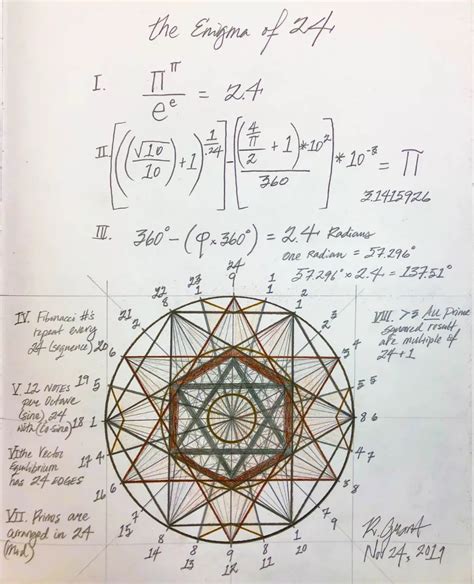 the Enigma of 24
I. π^π / e^e = 2.4
II. [((√10 / 10) + 1)^(1 / .24)] - [((4/π / 2) + 1) * 10² / 360] * 10^-8 = π
3.1415926
III. 360° - (φ × 360°) = 2.4 Radians
one Radian = 57.296°
57.296° × 2.4 = 137.51°
IV. Fibonacci #'s
repeat every
24 (sequence)
V. 12 NOTES
per Octave
(sine) 24
with (co-sine)
VI the Vector
Equilibrium
has 24 EDGES
VII. Primes are
arranged in 24
(mod)
VIII. >3 All Prime
squared result
are multiple of
24 + 1
24
9
1
1
2
2
3
3
4
5
5
8 6
4 7
8
9
1
10
2
11
9
12
13
8
14
8
15
7
16
6
17 4
18 1
19 5
20 6
21
2
22
8
23
1
R. Grant
Nov 24, 2019